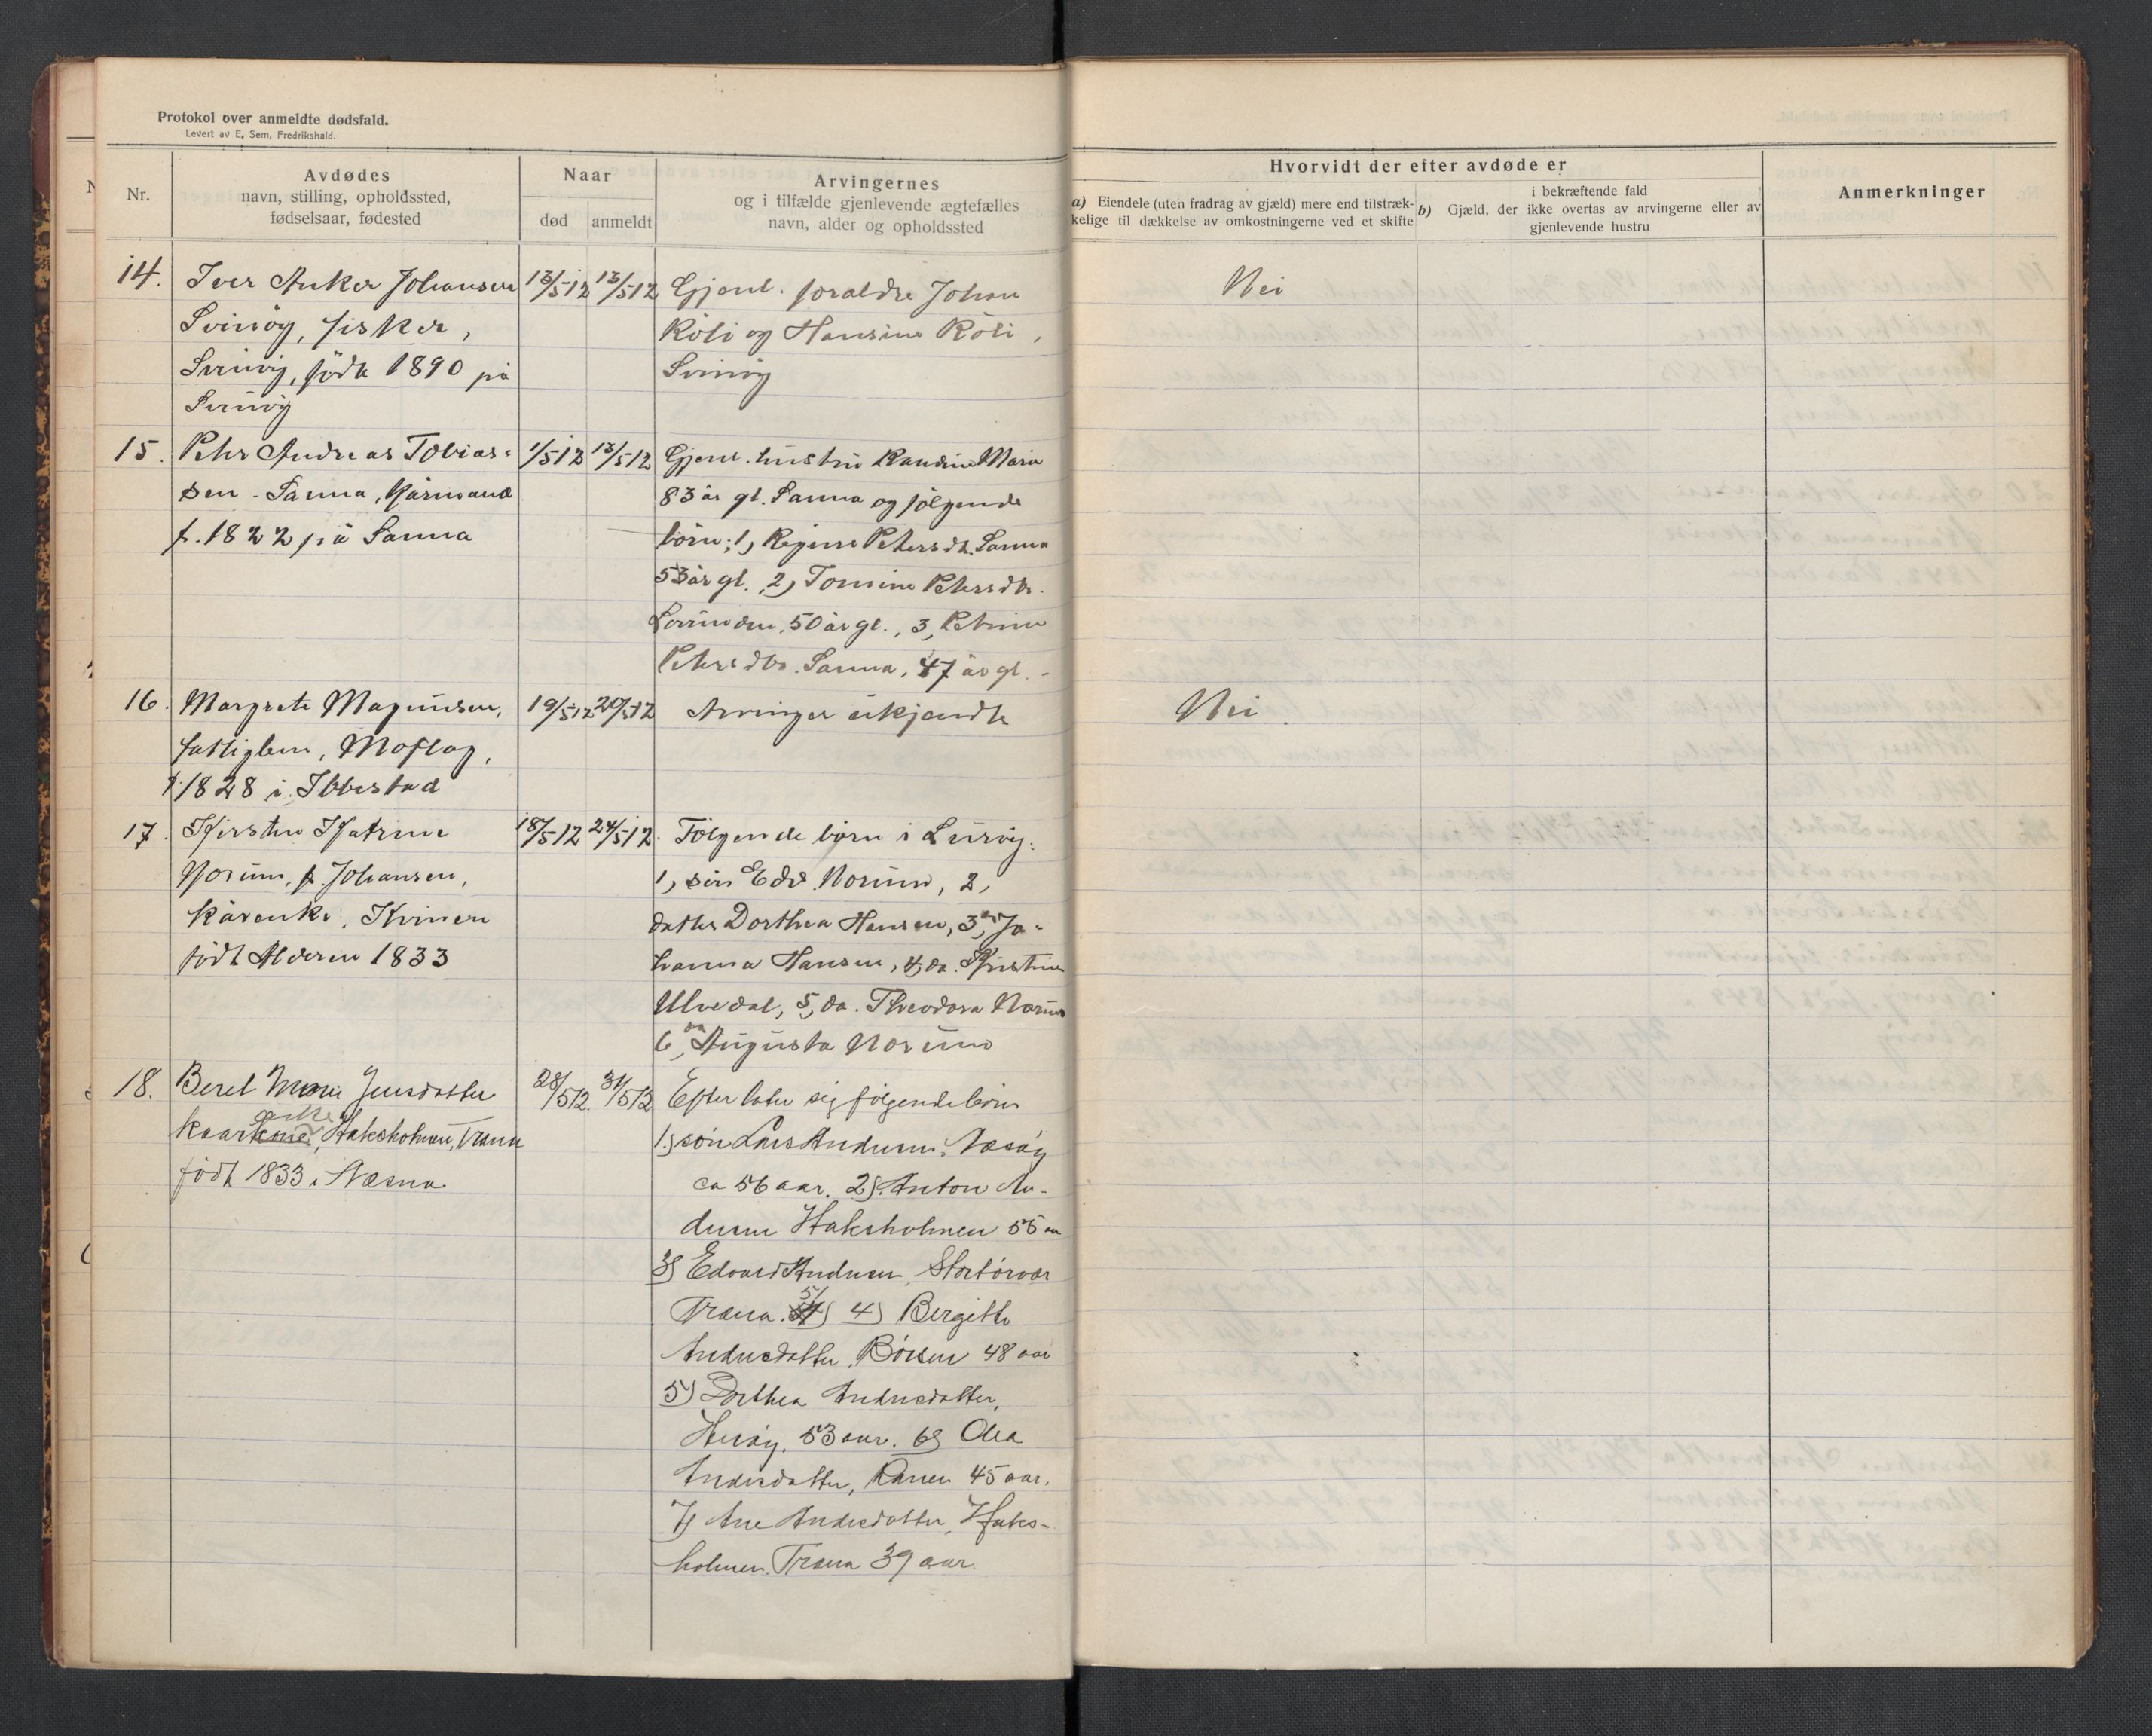 Protokol over anmeldte dødsfald.
Levert av E. Sem, Fredrikshald.
Nr.
Avdødes
navn, stilling, opholdssted,
fødselsaar, fødested
Naar
død
anmeldt
Arvingernes
og i tilfælde gjenlevende ægtefælles
navn, alder og opholdssted
Hvorvidt der efter avdøde er
a) Eiendele (uten fradrag av gjæld) mere end tilstræk-
kelige til dækkelse av omkostningerne ved et skifte
b) Gjæld, der
i bekræftende fald
ikke overtas av arvingerne eller av
gjenlevende hustru
Anmerkninger
14.
Iver Anker Johansen
Svinöy, fisker,
Svinöy, född 1890 på
Svinöy
13/5 12
13/5 12
Gjenl. foraldre Johan
Röli og Hansine Röli,
Svinöy
Nei
15.
Peher Andreas Tobias-
sen - Sanna, kårmand
f. 1822 på Sanna
1/5 12
13/5 12
Gjenl. hustru Randine Maria
83 år gl. Sanna og følgende
børn: 1, Regine Petersdt. Sanna
53 år gl., 2, Tomine Petersdtr.
Lovunden, 50 år gl., 3, Petrine
Petersdtr. Sanna, 47 år gl. -
16.
Margrete Magnusen,
fattiglem, Moflag,
f. 1828 i Ibbestad
19/5 12
20/5 12
Arvinger ukjendte
Nei.
17.
Kjersten Katrine
Norum, f. Johansen,
kårenke, Kvinen
född Alderen 1833
18/5 12
24/5 12.
Følgende børn i Lurøy:
1, sön Edv. Norum, 2,
datter Dorthea Hansen, 3, da Jo-
hanna Hansen, 4, da. Kjirstine
Ulvedal, 5, da. Theodora Norum
6, da Augusta Norum
18.
Beret Marie Jensdatter
kaarkone enke, Haksholmen, Træna
født 1833 i Næsna
28/5 12.
31/5 12
Efterlater sig følgende børn
1.) søn Lars Andersen, Næsøy
ca 56 aar. 2). Anton An-
dersen Haksholmen 55 aar
3) Edvard Andersen, Stortørvær
Træna. 54 51) 4) Bergitte
Andersdatter, Børsen 48 aar
5) Dorthea Andersdatter,
Husøy. 53 aar. 6) Olea
Andersdatter, Ranen 45 aar.
7) Ane Andersdatter, Haks-
holmen. Træna 39 aar.